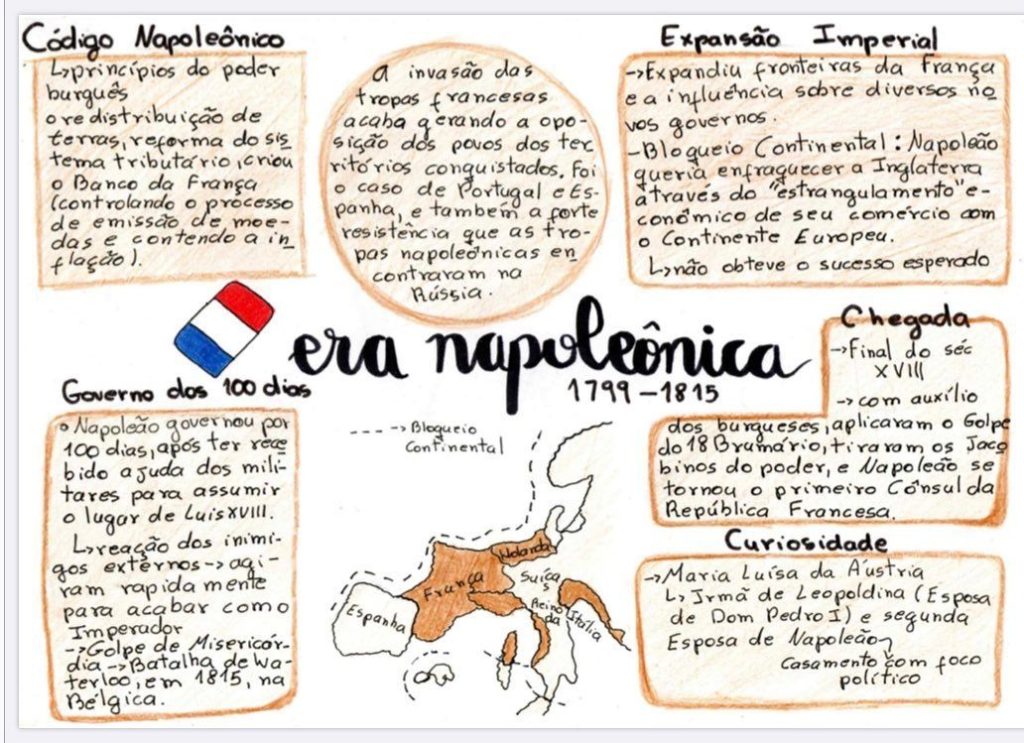 Código Napoleônico
↳princípios do poder
burguês
o redistribuição de
terras, reforma do sis
tema tributário, criou
o Banco da França
(controlando o processo
de emissão de moe-
das e contendo a in
flação).
A invasão das
tropas francesas
acaba gerando a opo-
sição dos povos dos ter
ritórios conquistados. Foi
o caso de Portugal e Es-
panha, e também a forte
resistência que as tro-
pas napoleônicas en
contraram na
Rússia.
Expansão Imperial
→Expandiu fronteiras da França
e a influência sobre diversos no
vos governos.
-Bloqueio Continental: Napoleão
queria enfraquecer a Inglaterra
através do "estrangulamento" e-
conômico de seu comércio com
o Continente Europeu.
↳não obteve o sucesso esperado
era napoleônica
1799-1815
Chegada
→Final do séc
XVIII
→com auxílio
dos burgueses, aplicaram o Golpe
do 18 Brumário, tiraram os Jaco
binos do poder, e Napoleão se
tornou o primeiro Cônsul da
República Francesa.
Governo dos 100 dias
• Napoleão governou por
100 dias, após ter rece
bido ajuda dos mili-
tares para assumir
o lugar de Luis XVIII.
↳reação dos inimi-
gos externos→agi-
ram rapidamente
para acabar com o
Imperador
→Golpe de Misericór-
dia→Batalha de Wa-
terloo, em 1815, na
Bélgica.
---→Bloqueio
Continental
Holanda
França
Suíça
Espanha
Reino
da
Itália
Curiosidade
→Maria Luísa da Áustria
↳Irmã de Leopoldina (Esposa
de Dom Pedro I) e segunda
Esposa de Napoleão
Casamento com foco
político